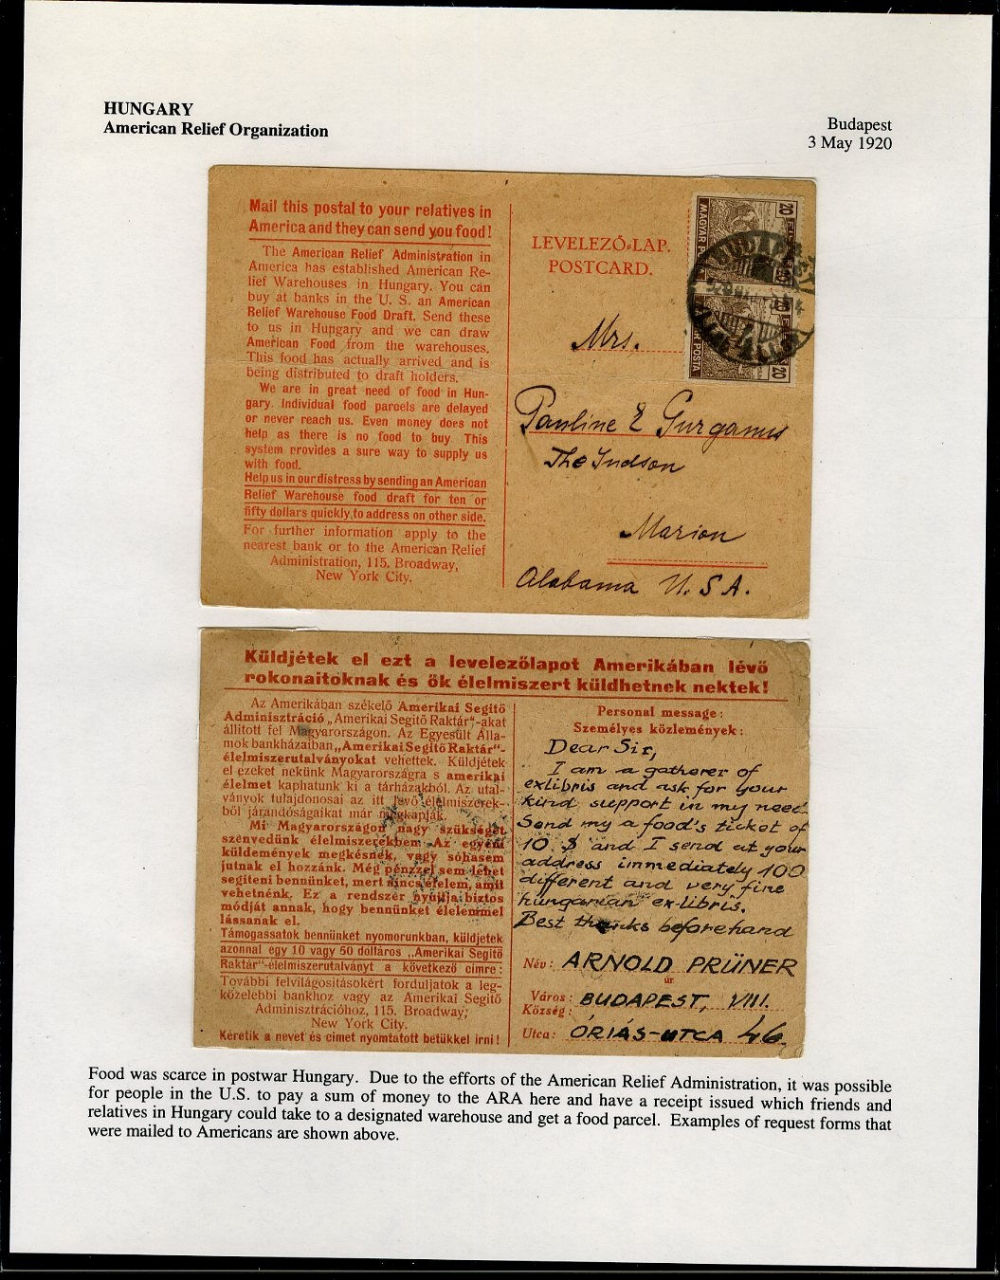 HUNGARY
American Relief Organization
Budapest
3 May 1920
Mail this postal to your relatives in
America and they can send you food!
The American Relief Administration in
America has established American Re-
lief Warehouses in Hungary. You can
buy at banks in the U. S. an American
Relief Warehouse Food Draft. Send these
to us in Hungary and we can draw
American Food from the warehouses.
This food has actually arrived and is
being distributed to draft holders.
We are in great need of food in Hun-
gary. Individual food parcels are delayed
or never reach us. Even money does not
help as there is no food to buy. This
system provides a sure way to supply us
with food.
Help us in our distress by sending an American
Relief Warehouse food draft for ten or
fifty dollars quickly, to address on other side.
For further information apply to the
nearest bank or to the American Relief
Administration, 115. Broadway,
New York City.
LEVELEZŐ-LAP.
POSTCARD.
20
MAGYAR
BUDAPEST
20
POSTA
20
Mrs.
Pauline E Gurganus
The Judson
Marion
Alabama U. S A.
Küldjétek el ezt a levelezőlapot Amerikában lévő
rokonaitoknak és ők élelmiszert küldhetnek nektek!
Az Amerikában székelő Amerikai Segitő
Adminisztráció „Amerikai Segitő Raktár"-akat
állitott fel Magyarországon. Az Egyesült Álla-
mok bankházaiban „Amerikai Segitő Raktár"-
élelmiszerutalványokat vehettek. Küldjétek
el ezeket nekünk Magyarországra s amerikai
élelmet kaphatunk ki a tárházakból. Az utal-
ványok tulajdonosai az itt levő élelmiszerek-
ből járandóságaikat már megkapják.
Mi Magyarországon nagy szükséget
szenvedünk élelmiszerekben. Az egyéni
küldemények megkésnek, vagy sohasem
jutnak el hozzánk. Még pénzzel sem lehet
segiteni bennünket, mert nincs élelem, amit
vehetnénk. Ez a rendszer nyujtja biztos
módját annak, hogy bennünket élelemmel
lássanak el.
Támogassatok bennünket nyomorunkban, küldjetek
azonnal egy 10 vagy 50 dolláros „Amerikai Segitő
Raktár"-élelmiszerutalványt a következő cimre:
További felvilágositásokért forduljatok a leg-
közelebbi bankhoz vagy az Amerikai Segitő
Adminisztrációhoz, 115. Broadway,
New York City.
Kéretik a nevet és cimet nyomtatott betükkel irni!
Personal message:
Személyes közlemények:
Dear Sir,
I am a gatherer of
exlibris and ask for your
kind support in my need.
Send my a food's ticket of
10 $ and I send at your
address immediately 100
different and very fine
hungarian ex-libris.
Best thanks beforehand
Név: ARNOLD PRÜNER
úr
Város: BUDAPEST, VIII.
Község:
Utca: ÓRIÁS-UTCA 46.
Food was scarce in postwar Hungary. Due to the efforts of the American Relief Administration, it was possible
for people in the U.S. to pay a sum of money to the ARA here and have a receipt issued which friends and
relatives in Hungary could take to a designated warehouse and get a food parcel. Examples of request forms that
were mailed to Americans are shown above.